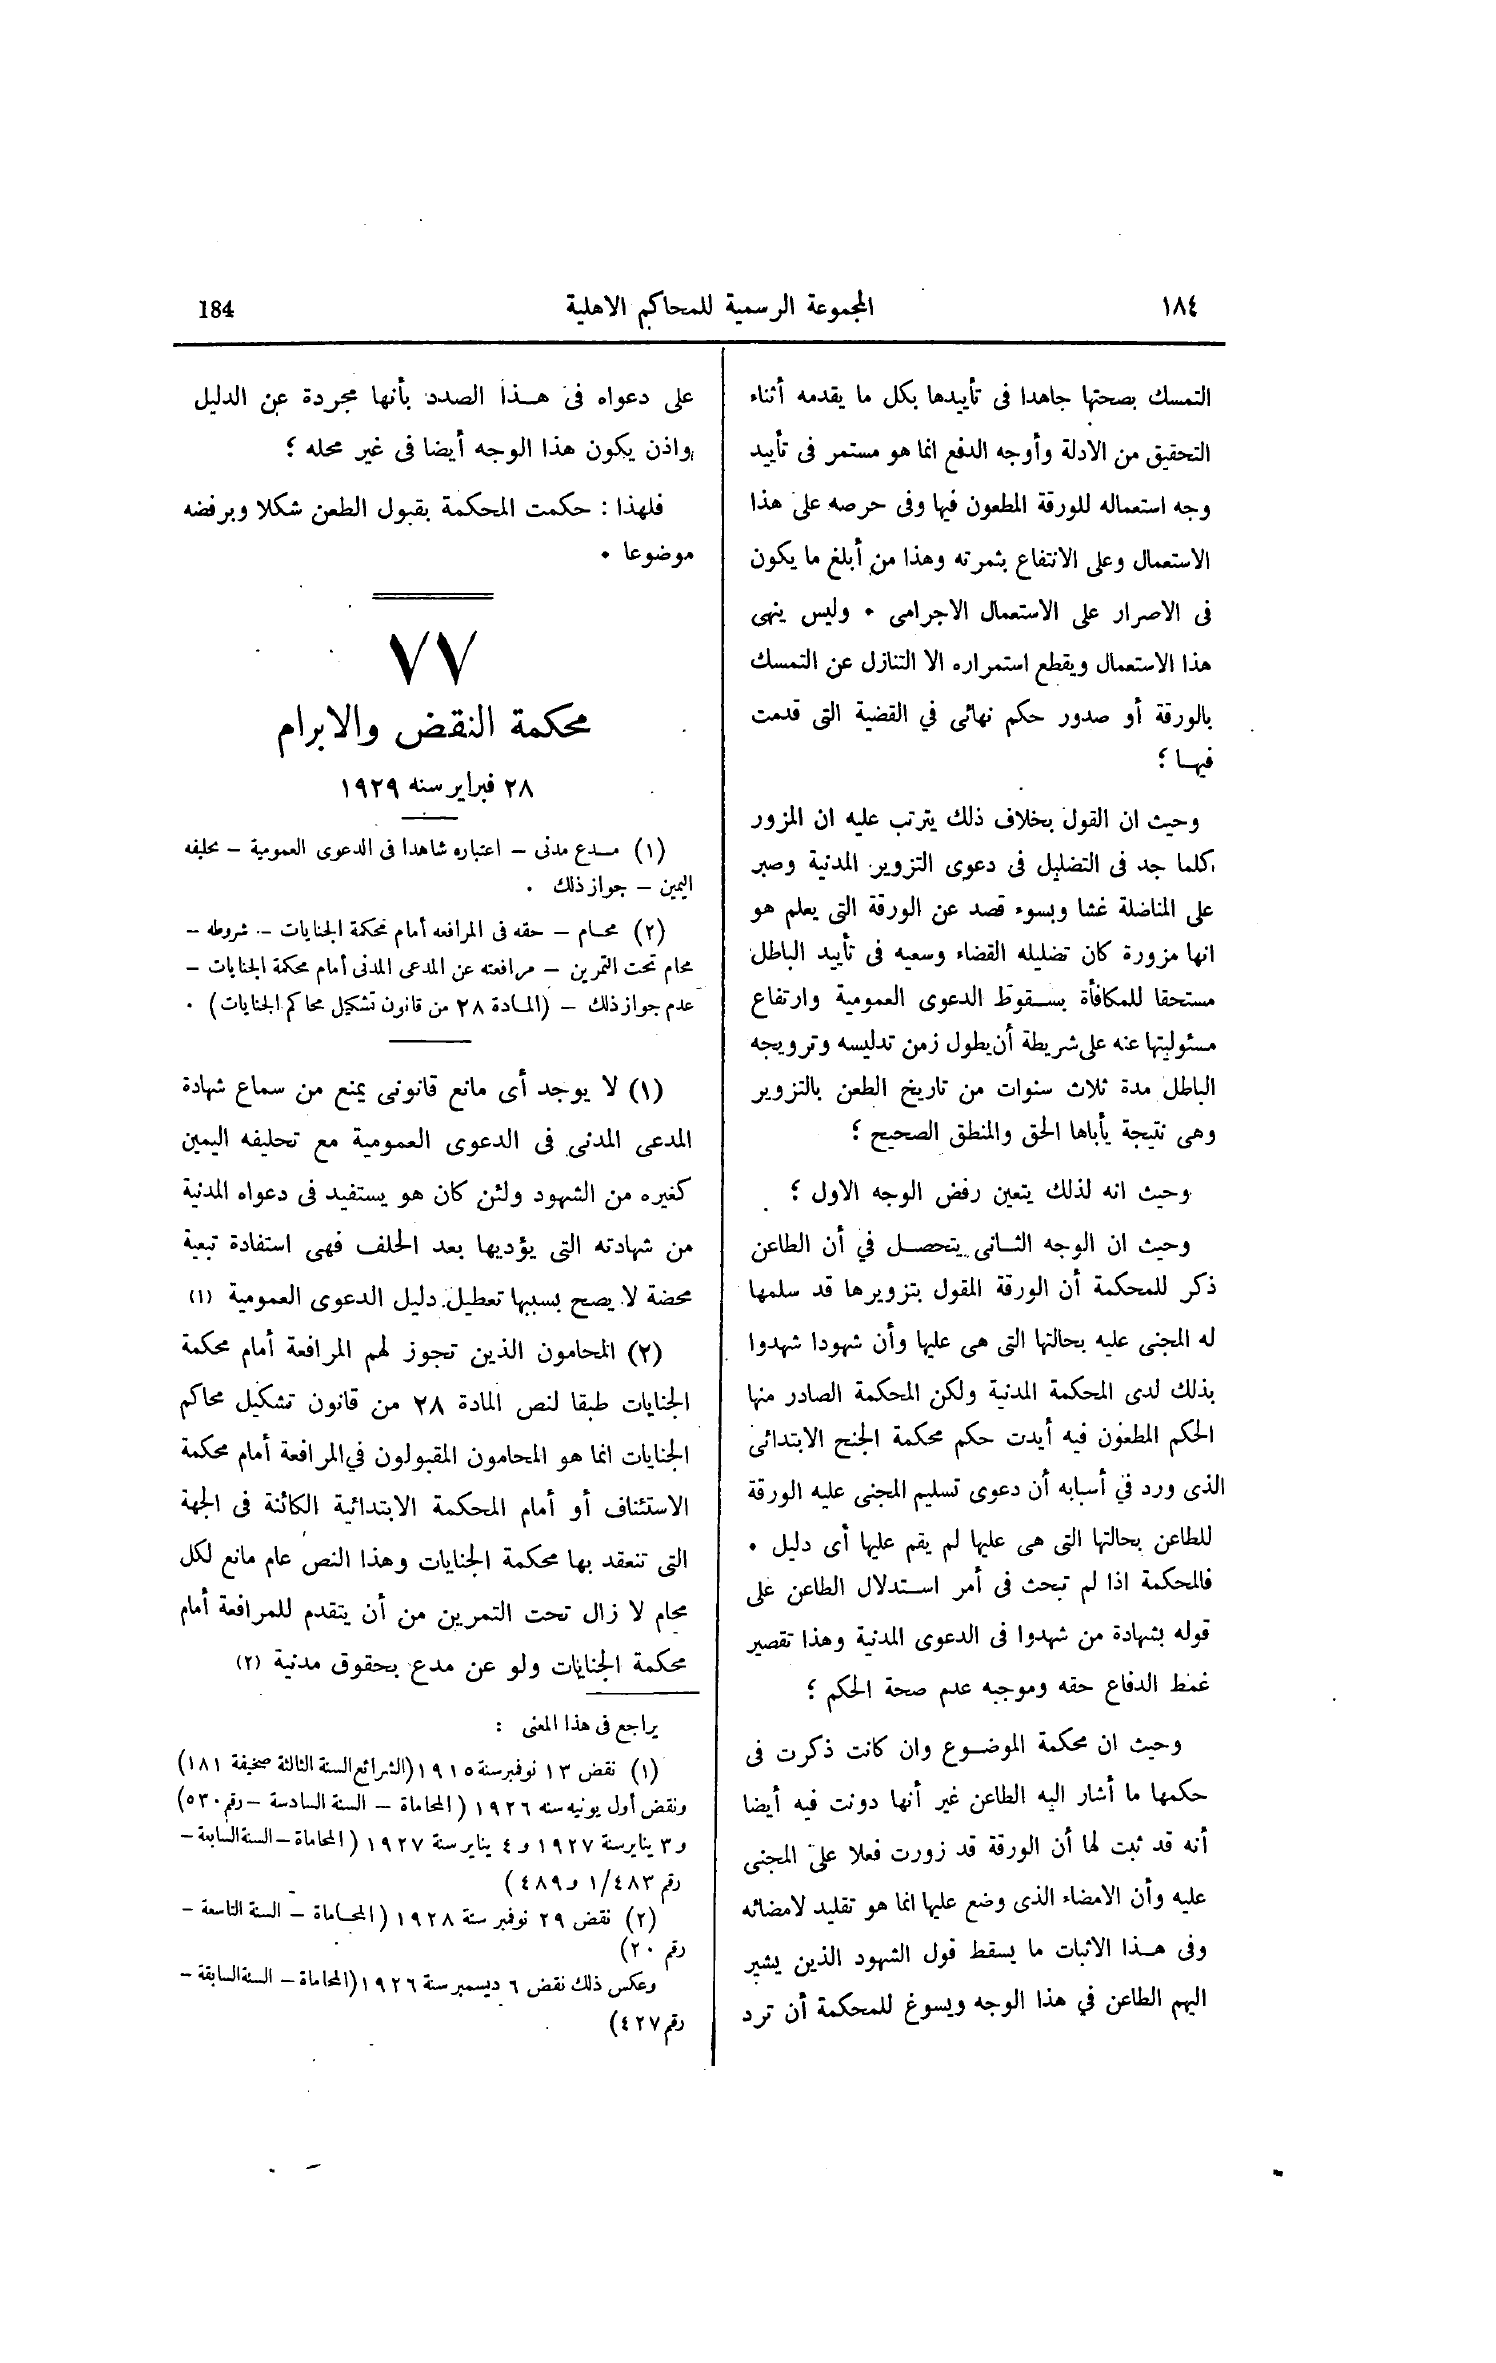 ١٨٤
المجموعة الرسمية للمحاكم الاهلية
184
التمسك بصحتها جاهدا فى تأييدها بكل ما يقدمه أثناء
التحقيق من الادلة وأوجه الدفع انما هو مستمر فى تأييد
وجه استعماله للورقة المطعون فيها وفى حرصه على هذا
الاستعمال وعلى الانتفاع بثمرته وهذا من أبلغ ما يكون
فى الاصرار على الاستعمال الاجرامى ٠ وليس ينهى
هذا الاستعمال ويقطع استمراره الا التنازل عن التمسك
بالورقة أو صدور حكم نهائى في القضية التى قدمت
فيهـا ؛
وحيث ان القول بخلاف ذلك يترتب عليه ان المزور
كلما جد فى التضليل فى دعوى التزوير المدنية وصبر
على المناضلة غشا وبسوء قصد عن الورقة التى يعلم هو
انها مزورة كان تضليله القضاء وسعيه فى تأييد الباطل
مستحقا للمكافأة بسـقوط الدعوى العمومية وارتفاع
مسئوليتها عنه على شريطة أن يطول زمن تدليسه وترويجه
الباطل مدة ثلاث سنوات من تاريخ الطعن بالتزوير
وهى نتيجة يأباها الحق والمنطق الصحيح ؛
وحيث انه لذلك يتعين رفض الوجه الاول ؛
وحيث ان الوجه الثـانى يتحصـل في أن الطاعن
ذكر للمحكمة أن الورقة المقول بتزويرها قد سلمها
له المجنى عليه بحالتها التى هى عليها وأن شهودا شهدوا
بذلك لدى المحكمة المدنية ولكن المحكمة الصادر منها
الحكم المطعون فيه أيدت حكم محكمة الجنح الابتدائى
الذى ورد في أسبابه أن دعوى تسليم المجنى عليه الورقة
للطاعن بحالتها التى هى عليها لم يقم عليها أى دليل ٠
فالمحكمة اذا لم تبحث فى أمر استـدلال الطاعن على
قوله بشهادة من شهدوا فى الدعوى المدنية وهذا تقصير
غمط الدفاع حقه وموجبه عدم صحة الحكم ؛
وحيث ان محكمة الموضـوع وان كانت ذكرت فى
حكمها ما أشار اليه الطاعن غير أنها دونت فيه أيضا
أنه قد ثبت لها أن الورقة قد زورت فعلا على المجنى
عليه وأن الامضاء الذى وضع عليها انما هو تقليد لامضائه
وفى هـذا الاثبات ما يسقط قول الشهود الذين يشير
اليهم الطاعن في هذا الوجه ويسوغ للمحكمة أن ترد
على دعواه فى هـذا الصدد بأنها مجردة عن الدليل
واذن يكون هذا الوجه أيضا فى غير محله ؛
فلهذا : حكمت المحكمة بقبول الطعن شكلا وبرفضه
موضوعا ٠
٧٧
محكمة النقض والابرام
٢٨ فبراير سنه ١٩٢٩
(١) مـدع مدنى – اعتباره شاهدا فى الدعوى العمومية – تحليفه
اليمين – جواز ذلك ٠
(٢) محـام – حقه فى المرافعه أمام محكمة الجنايات – شروطه –
محام تحت التمرين – مرافعته عن المدعى المدنى أمام محكمة الجنايات –
عدم جواز ذلك – (المـادة ٢٨ من قانون تشكيل محاكم الجنايات) ٠
(١) لا يوجد أى مانع قانونى يمنع من سماع شهادة
المدعى المدنى فى الدعوى العمومية مع تحليفه اليمين
كغيره من الشهود ولئن كان هو يستفيد فى دعواه المدنية
من شهادته التى يؤديها بعد الحلف فهى استفادة تبعية
محضة لا يصح بسببها تعطيل دليل الدعوى العمومية (١)
(٢) المحامون الذين تجوز لهم المرافعة أمام محكمة
الجنايات طبقا لنص المادة ٢٨ من قانون تشكيل محاكم
الجنايات انما هو المحامون المقبولون في المرافعة أمام محكمة
الاستئناف أو أمام المحكمة الابتدائية الكائنة فى الجهة
التى تنعقد بها محكمة الجنايات وهذا النص عام مانع لكل
محام لا زال تحت التمرين من أن يتقدم للمرافعة أمام
محكمة الجنايات ولو عن مدع بحقوق مدنية (٢)
يراجع فى هذا المعنى :
(١) نقض ١٣ نوفمبر سنة ١٩١٥ (الشرائع السنة الثالثة صحيفة ١٨١)
ونقض أول يونيه سنه ١٩٢٦ (المحاماة – السنة السادسة – رقم ٥٣٠)
و٣ يناير سنة ١٩٢٧ و٤ يناير سنة ١٩٢٧ (المحاماة – السنة السابعة –
رقم ١/٤٨٣ و٤٨٩)
(٢) نقض ٢٩ نوفمبر سنة ١٩٢٨ (المحـاماة – السنة التاسعة –
رقم ٢٠)
وعكس ذلك نقض ٦ ديسمبر سنة ١٩٢٦ (المحاماة – السنة السابقة –
رقم ٤٢٧)